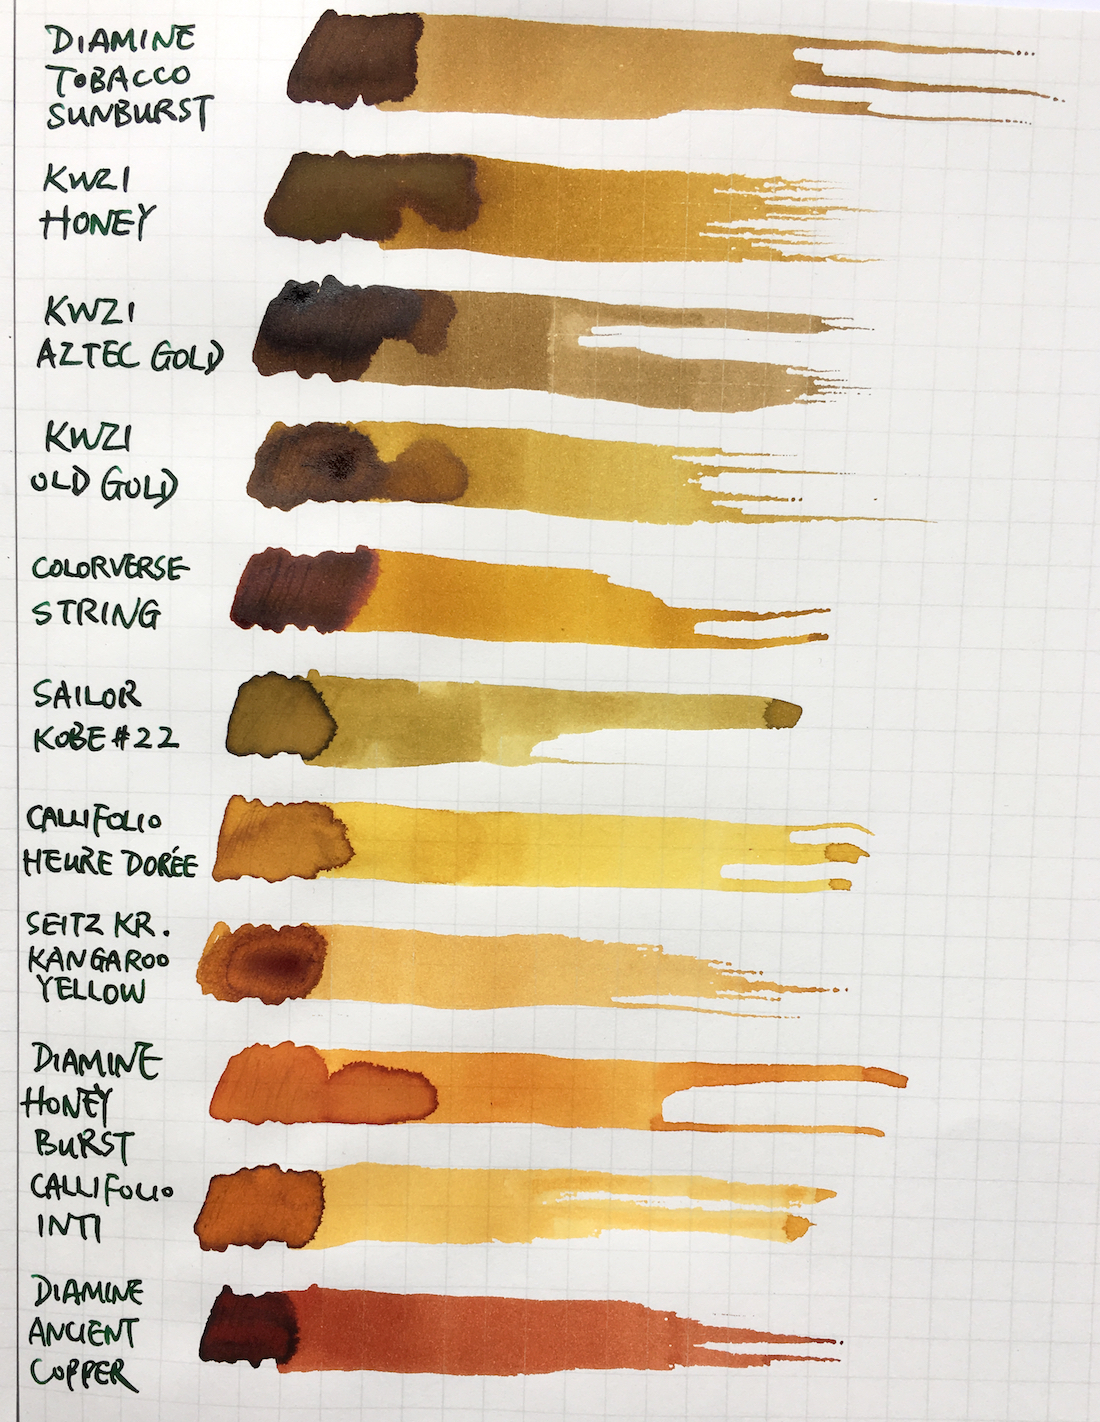 DIAMINE
TOBACCO
SUNBURST
KWZI
HONEY
KWZI
AZTEC GOLD
KWZI
OLD GOLD
COLORVERSE
STRING
SAILOR
KOBE #22
CALLIFOLIO
HEURE DORÉE
SEITZ KR.
KANGAROO
YELLOW
DIAMINE
HONEY
BURST
CALLIFOLIO
INTI
DIAMINE
ANCIENT
COPPER